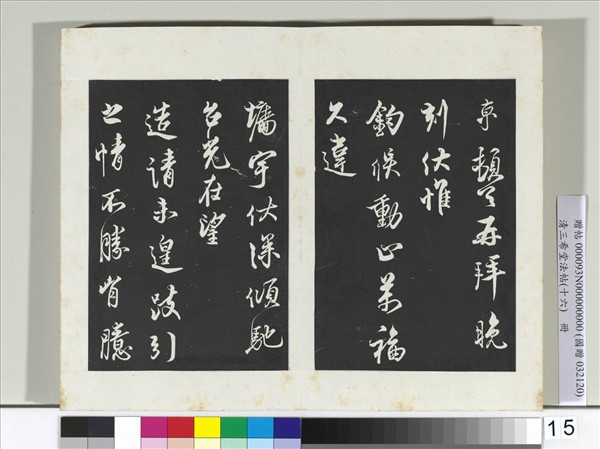 京頓首再拜晚
刻伏惟
鈞候動止萬福
久違
墻宇伏深傾馳
台光在望
造請未遑跂引
之情不勝胷臆
贈帖 000093N000000000 (國贈 032120)
清三希堂法帖(十六) 冊
15